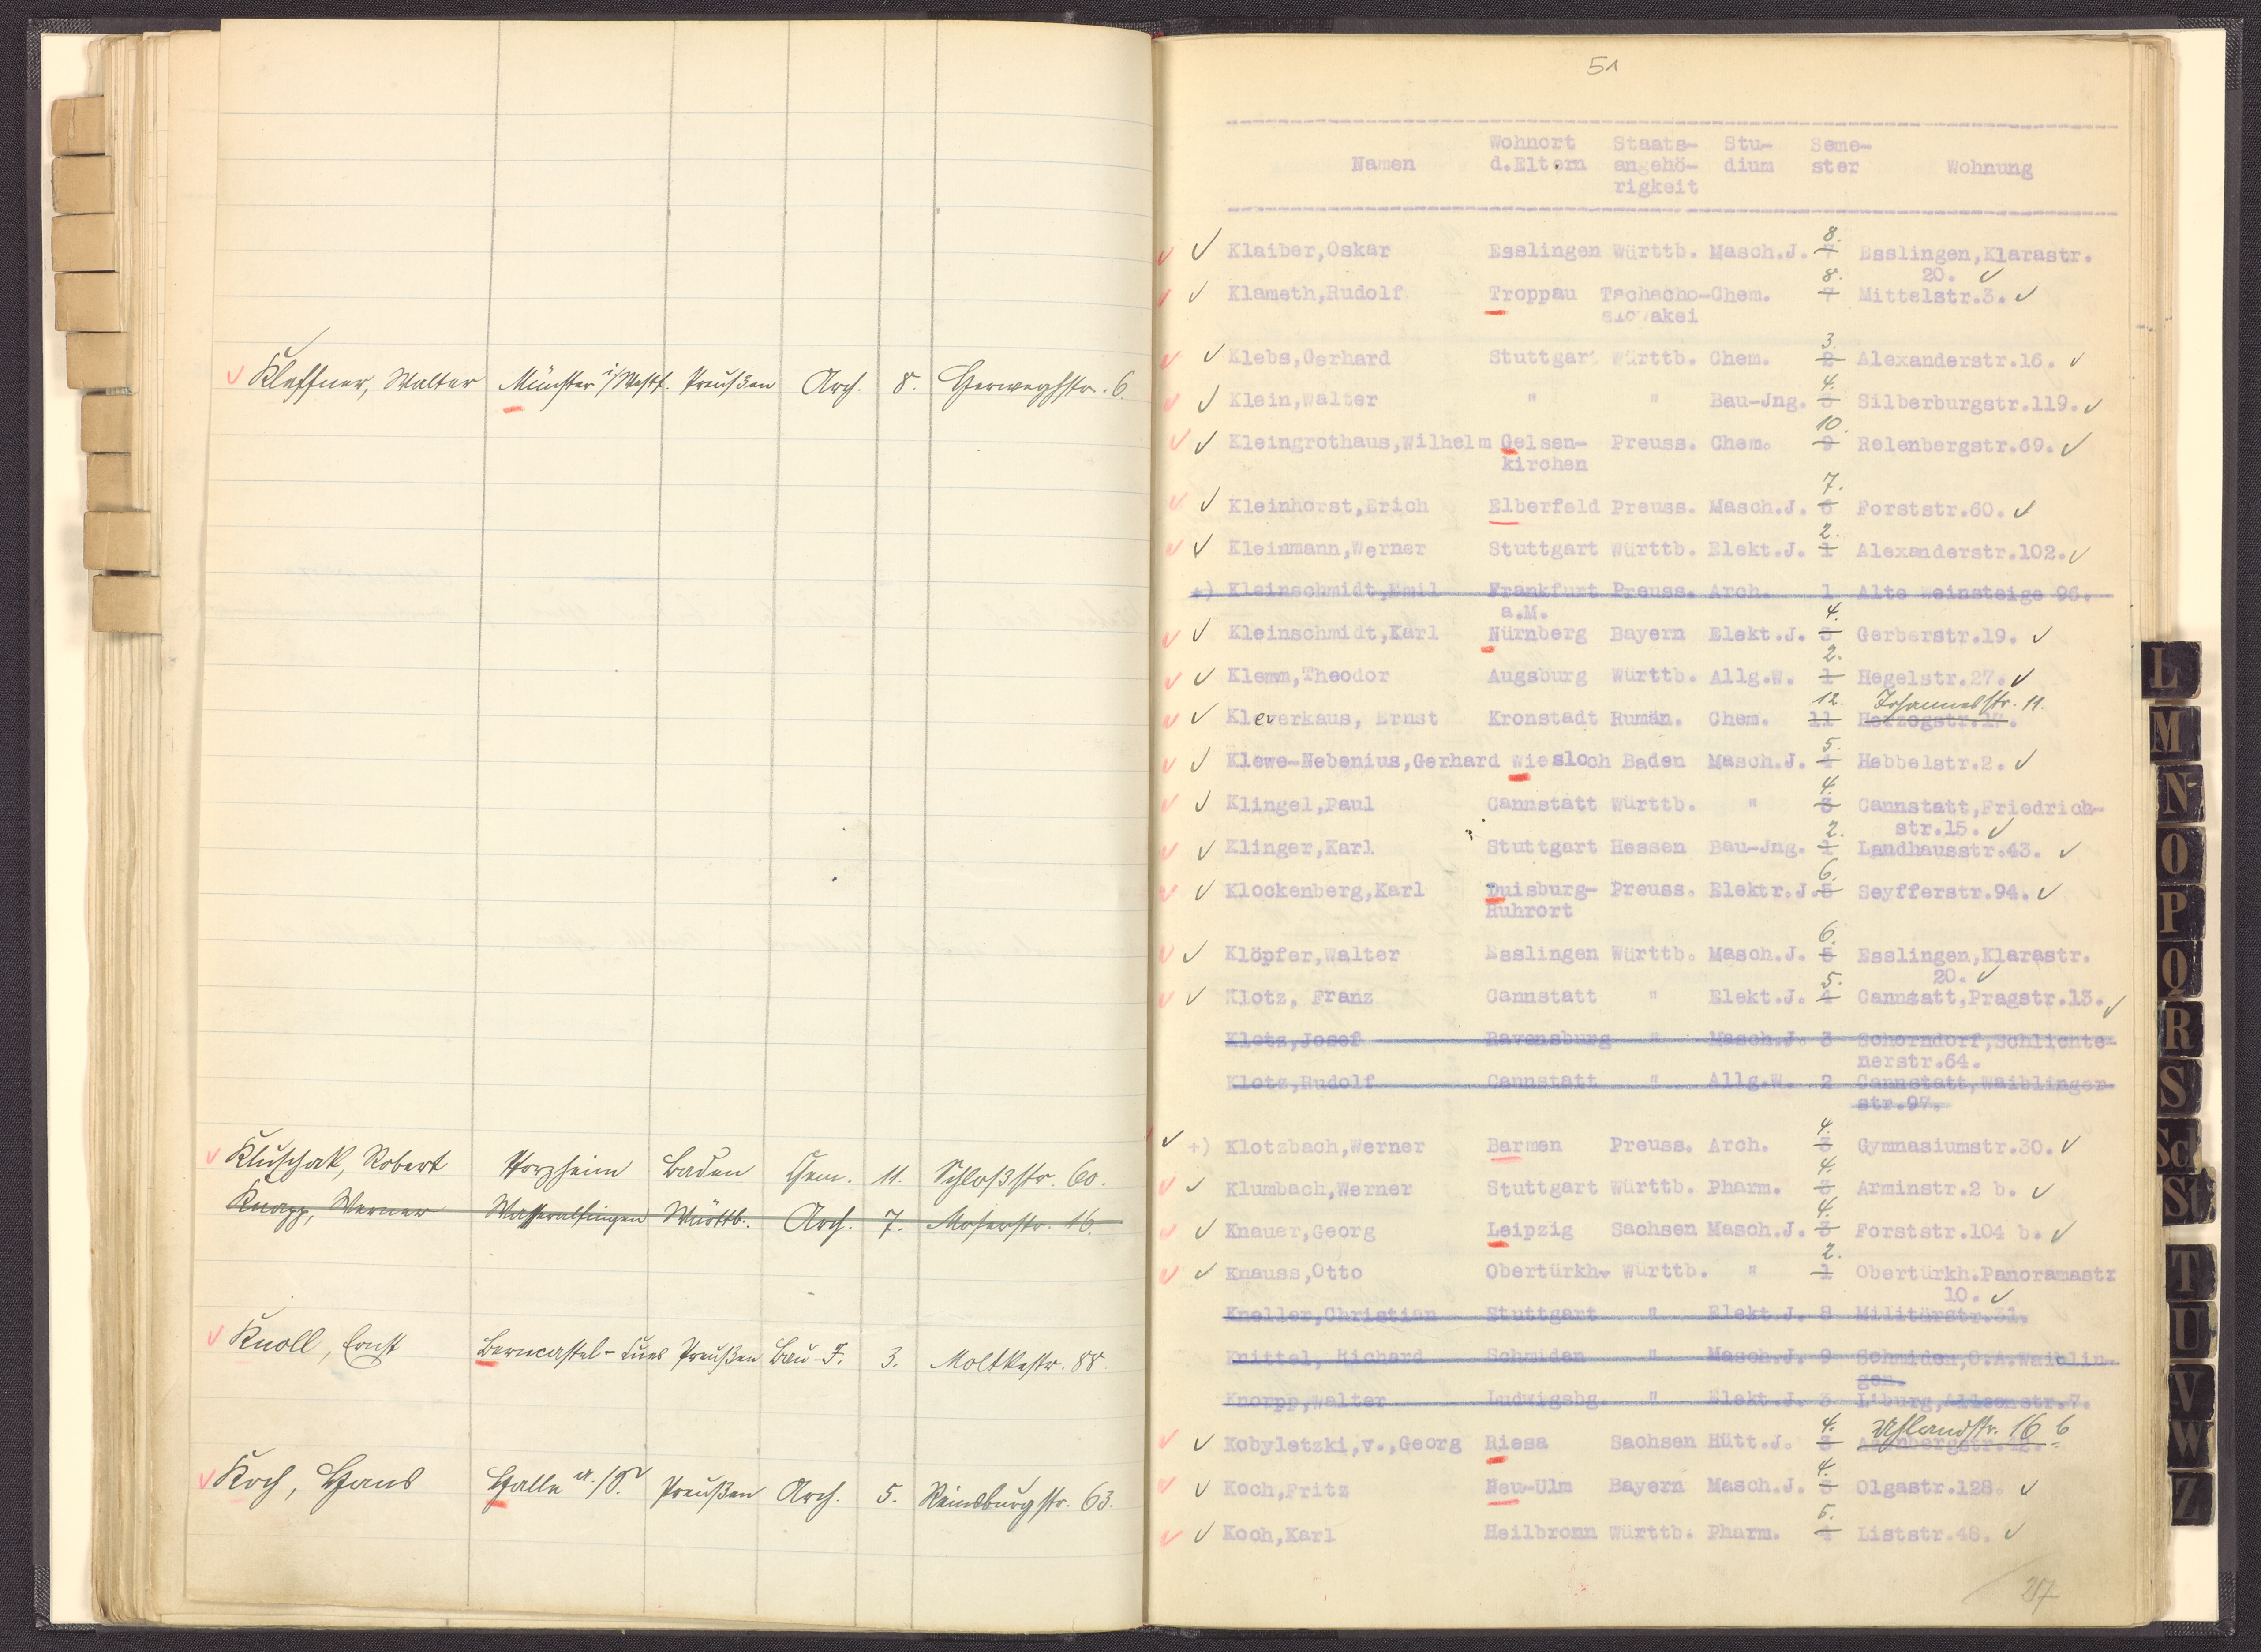 Kleffner, Walter Münster i/Westf. Preußen Arch. 8. Herweghstr. 6.
Kluschak, Robert Pforzheim Baden Chem. 11. Schloßstr. 60.
Knapp, Werner Wasseralfingen Württb. Arch. 7. Moserstr. 16.
Knoll, Ernst Berncastel-Cues Preußen Bau-J. 3. Moltkestr. 88.
Koch, Hans Halle a./S. Preußen Arch. 5. Reinsburgstr. 63.
51
Wohnort Staats- Stu- Seme-
Namen d.Eltern angehö- dium ster Wohnung
rigkeit
8.
Klaiber,Oskar Esslingen Württb. Masch.J. 7 Esslingen,Klarastr.
8. 20.
Klameth,Rudolf Troppau Tschecho-Chem. 7 Mittelstr.3.
slowakei
3.
Klebs,Gerhard Stuttgart Württb. Chem. 2 Alexanderstr.16.
4.
Klein,Walter " " Bau-Jng. 3 Silberburgstr.119.
10.
Kleingrothaus,Wilhelm Gelsen- Preuss. Chem. 9 Relenbergstr.69.
kirchen
7.
Kleinhorst,Erich Elberfeld Preuss. Masch.J. 6 Forststr.60.
2.
Kleinmann,Werner Stuttgart Württb. Elekt.J. 1 Alexanderstr.102.
+) Kleinschmidt,Emil Frankfurt Preuss. Arch. 1 Alte Weinsteige 96.
a.M. 4.
Kleinschmidt,Karl Nürnberg Bayern Elekt.J. 3 Gerberstr.19.
2.
Klemm,Theodor Augsburg Württb. Allg.W. 1 Hegelstr.27.
12. Johannesstr. 11.
Kleverkaus, Ernst Kronstadt Rumän. Chem. 11 Herzogstr.17.
5.
Klewe-Nebenius,Gerhard Wiesloch Baden Masch.J. 4 Hebbelstr.2.
4.
Klingel,Paul Cannstatt Württb. " 3 Cannstatt,Friedrich-
2. str.15.
Klinger,Karl Stuttgart Hessen Bau-Jng. 1 Landhausstr.43.
6.
Klockenberg,Karl Duisburg- Preuss. Elektr.J.5 Seyfferstr.94.
Ruhrort
6.
Klöpfer,Walter Esslingen Württb. Masch.J. 5 Esslingen,Klarastr.
5. 20.
Klotz, Franz Cannstatt " Elekt.J. 4 Cannstatt,Pragstr.13.
Klotz,Josef Ravensburg " Masch.J. 3 Schorndorf,Schlichte-
nerstr.64.
Klotz,Rudolf Cannstatt " Allg.W. 2 Cannstatt,Waiblinger-
str.97.
4.
+) Klotzbach,Werner Barmen Preuss. Arch. 3 Gymnasiumstr.30.
4.
Klumbach,Werner Stuttgart Württb. Pharm. 3 Arminstr.2 b.
4.
Knauer,Georg Leipzig Sachsen Masch.J. 3 Forststr.104 b.
2.
Knauss,Otto Obertürkh. Württb. " 1 Obertürkh.Panoramastr
10.
Kneller,Christian Stuttgart " Elekt.J. 8 Militärstr.31.
Knittel, Richard Schmiden " Masch.J. 9 Schmiden,O.A.Waiblin-
gen.
Knorpp,Walter Ludwigsbg. " Elekt.J. 3 L'burg,Alleenstr.7.
4. Uhlandstr. 16 b
Kobyletzki,v.,Georg Riesa Sachsen Hütt.J. 3
4.
Koch,Fritz Neu-Ulm Bayern Masch.J. 3 Olgastr.128.
5.
Koch,Karl Heilbronn Württb. Pharm. 4 Liststr.48.
L
M
N
O
P
Q
R
S
Sch
St
T
U
V
W
Z